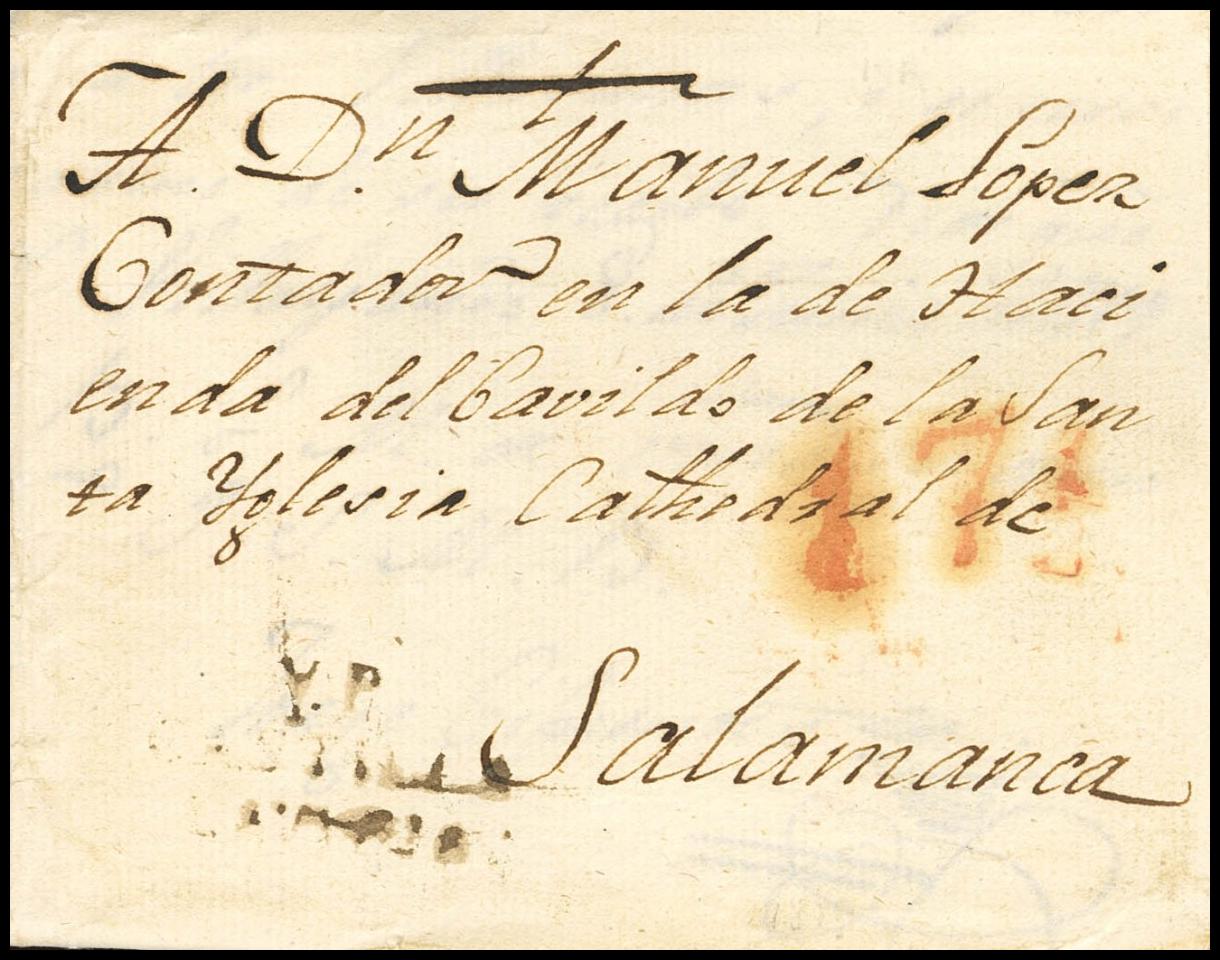 A. D.n Manuel Lopez
Contador en la de Haci
enda del Cavildo de la San
ta Yglesia Cathedral de
17
Salamanca